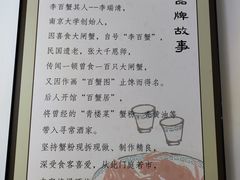 品牌故事
李百蟹其人--李瑞清，
南京大学创始人，
因喜食大闸蟹，自号“李百蟹”，
民国遗老，张大千恩师，
传闻一顿曾食一百只大闸蟹，
又因作画“百蟹图”止馋而得名。
后人开馆“百蟹居”，
将曾经的“青楼菜”蟹粉、秃黄油等
带入寻常酒家。
坚持蟹粉现拆现做、制作精良，
深受食客喜爱，从此门庭若市，